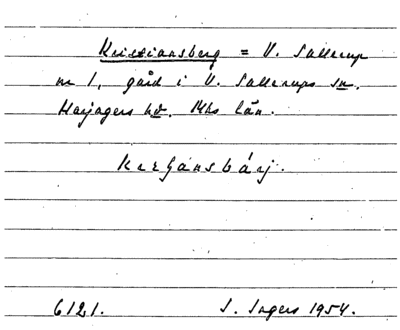 Kristiansberg = V. Sallerup
nr 1, gård i V. Sallerups sn.
Harjagers hd. Mhs län.
6121. S. Ingers 1954.